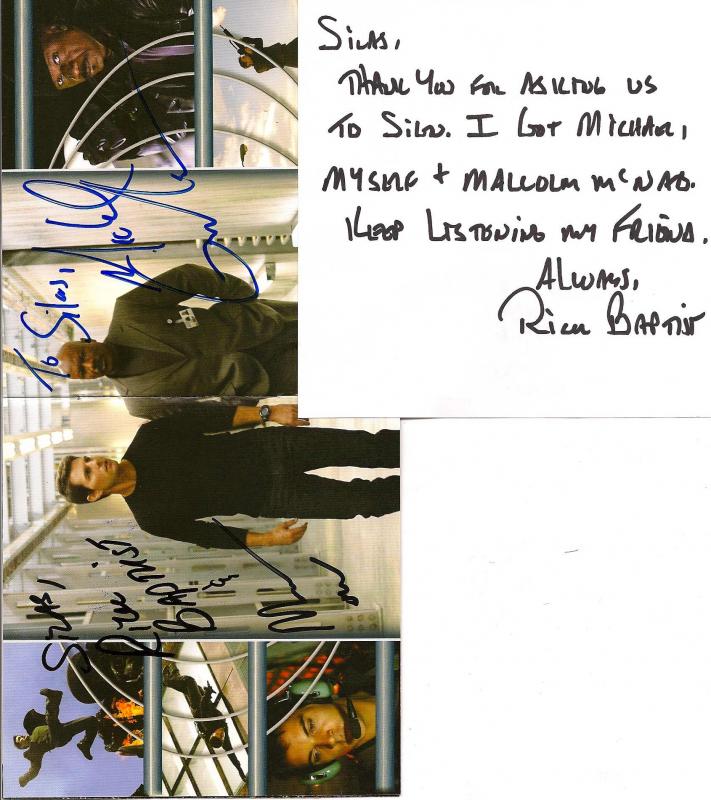 Silas,
Thank You for asking us
to sign. I got Michael,
myself + Malcolm McNab.
Keep listening my friend.
Always,
Rick Baptist
To Silas,
Silas,
Rick
Baptist